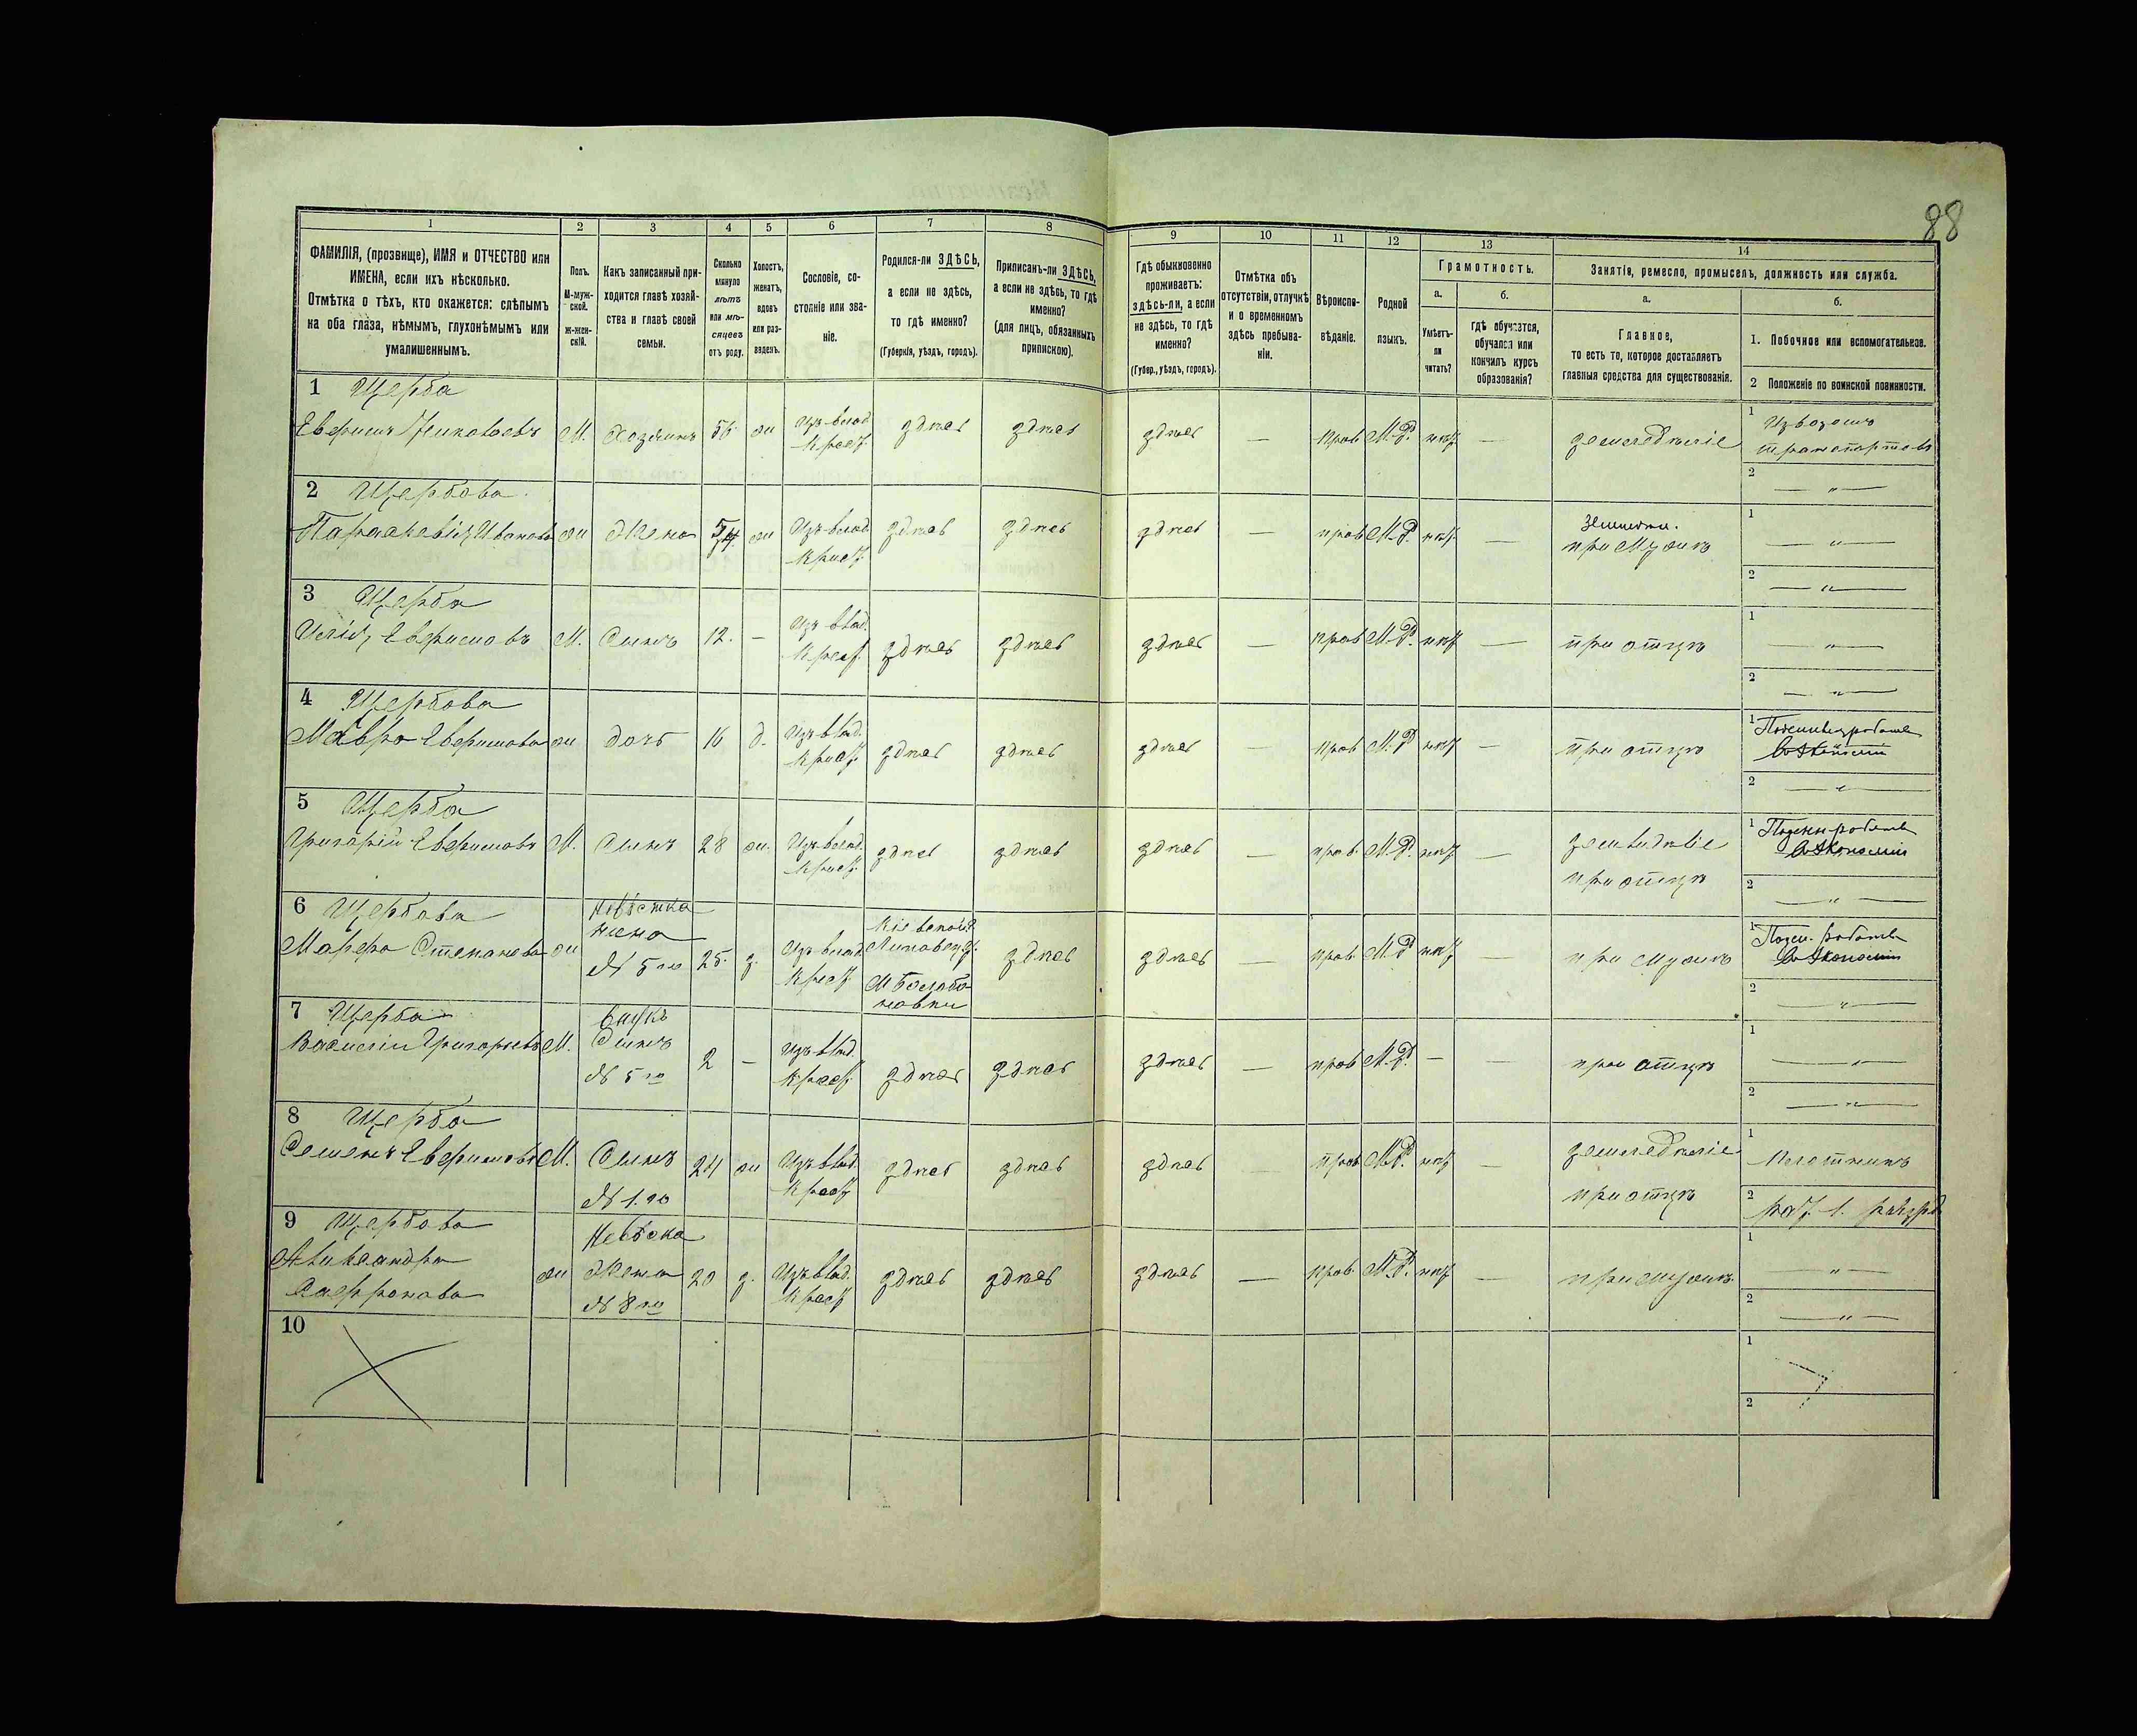 88
1 2 3 4 5 6 7 8 9 10 11 12 13 14
ФАМИЛІЯ, (прозвище), ИМЯ и ОТЧЕСТВО или
ИМЕНА, если ихъ нѣсколько.
Отмѣтка о тѣхъ, кто окажется: слѣпымъ
на оба глаза, нѣмымъ, глухонѣмымъ или
умалишеннымъ.
Полъ.
М-муж-
ской.
ж-жен-
скій.
Какъ записанный при-
ходится главѣ хозяй-
ства и главѣ своей
семьи.
Сколько
минуло
лѣтъ
или мѣ-
сяцевъ
отъ роду.
Холостъ,
женатъ,
вдовъ
или раз-
веденъ.
Сословіе, со-
стояніе или зва-
ніе.
Родился-ли ЗДѢСЬ,
а если не здѣсь,
то гдѣ именно?
(Губернія, уѣздъ, городъ).
Приписанъ-ли ЗДѢСЬ,
а если не здѣсь, то гдѣ
именно?
(для лицъ, обязанныхъ
припискою).
Гдѣ обыкновенно
проживаетъ:
здѣсь-ли, а если
не здѣсь, то гдѣ
именно?
(Губер., уѣздъ, городъ).
Отмѣтка объ
отсутствіи, отлучкѣ
и о временномъ
здѣсь пребыва-
ніи.
Вѣроиспо-
вѣданіе.
Родной
языкъ.
Грамотность.
а.
Умѣетъ-
ли
читать?
б.
гдѣ обучается,
обучался или
кончилъ курсъ
образованія?
Занятія, ремесло, промыселъ, должность или служба.
а.
Главное,
то есть то, которое доставляетъ
главныя средства для существованія.
б.
1. Побочное или вспомогательное.
2 Положеніе по воинской повинности.
1 Щерба
М. Хозяинъ 56 ж Изъ влад. крест. здѣсь здѣсь здѣсь — прав. М.Р. нѣт — земледѣліе
1 Извозомъ
транспортовъ
2 — " —
2 Щербова
Параскевія Иванова ж Жена 54 ж Изъ влад. крест. здѣсь здѣсь здѣсь — прав. М.Р. нѣт —
при Мужѣ
1 — " —
2 — " —
3 Щерба
М. Сынъ 12. — Изъ влад. крест. здѣсь здѣсь здѣсь — прав. М.Р. нѣт — при отцѣ
1 — " —
2 — " —
4 Щербова
Мавра ж дочь 16 д. Изъ влад. крест. здѣсь здѣсь здѣсь — прав. М.Р. нѣт — при отцѣ
1
2 — " —
5 Щерба
Григорій М. Сынъ 28 ж. Изъ влад. крест. здѣсь здѣсь здѣсь — прав. М.Р. нѣт — земледѣліе
при отцѣ
1
въ Экономіи
2 — " —
6 Щербова
Невѣстка
жена
№ 5го
Марфа Степанова ж 25. з. Изъ влад. крест.
Кіевской
Липовец.
здѣсь здѣсь — прав. М.Р. нѣт — при мужѣ
1
въ Экономіи
2 — " —
7 Щерба
Внукъ
Сынъ
№ 5го
Василій Григорьевъ М. 2 — Изъ влад. крест. здѣсь здѣсь здѣсь — прав. М.Р. — — при отцѣ
1 — " —
2 — " —
8 Щерба
Семенъ М. Сынъ 24 ж Изъ влад. крест. здѣсь здѣсь здѣсь — прав. М.Р. нѣт — земледѣліе
№ 1.го
при отцѣ
1 Плотникъ
2
9 Щербова
Александра
Сафронова
ж
Жена
№ 8го
20 з. Изъ влад. крест. здѣсь здѣсь здѣсь — прав. М.Р. нѣт — при мужѣ
1 — " —
2 — " —
10
1
2